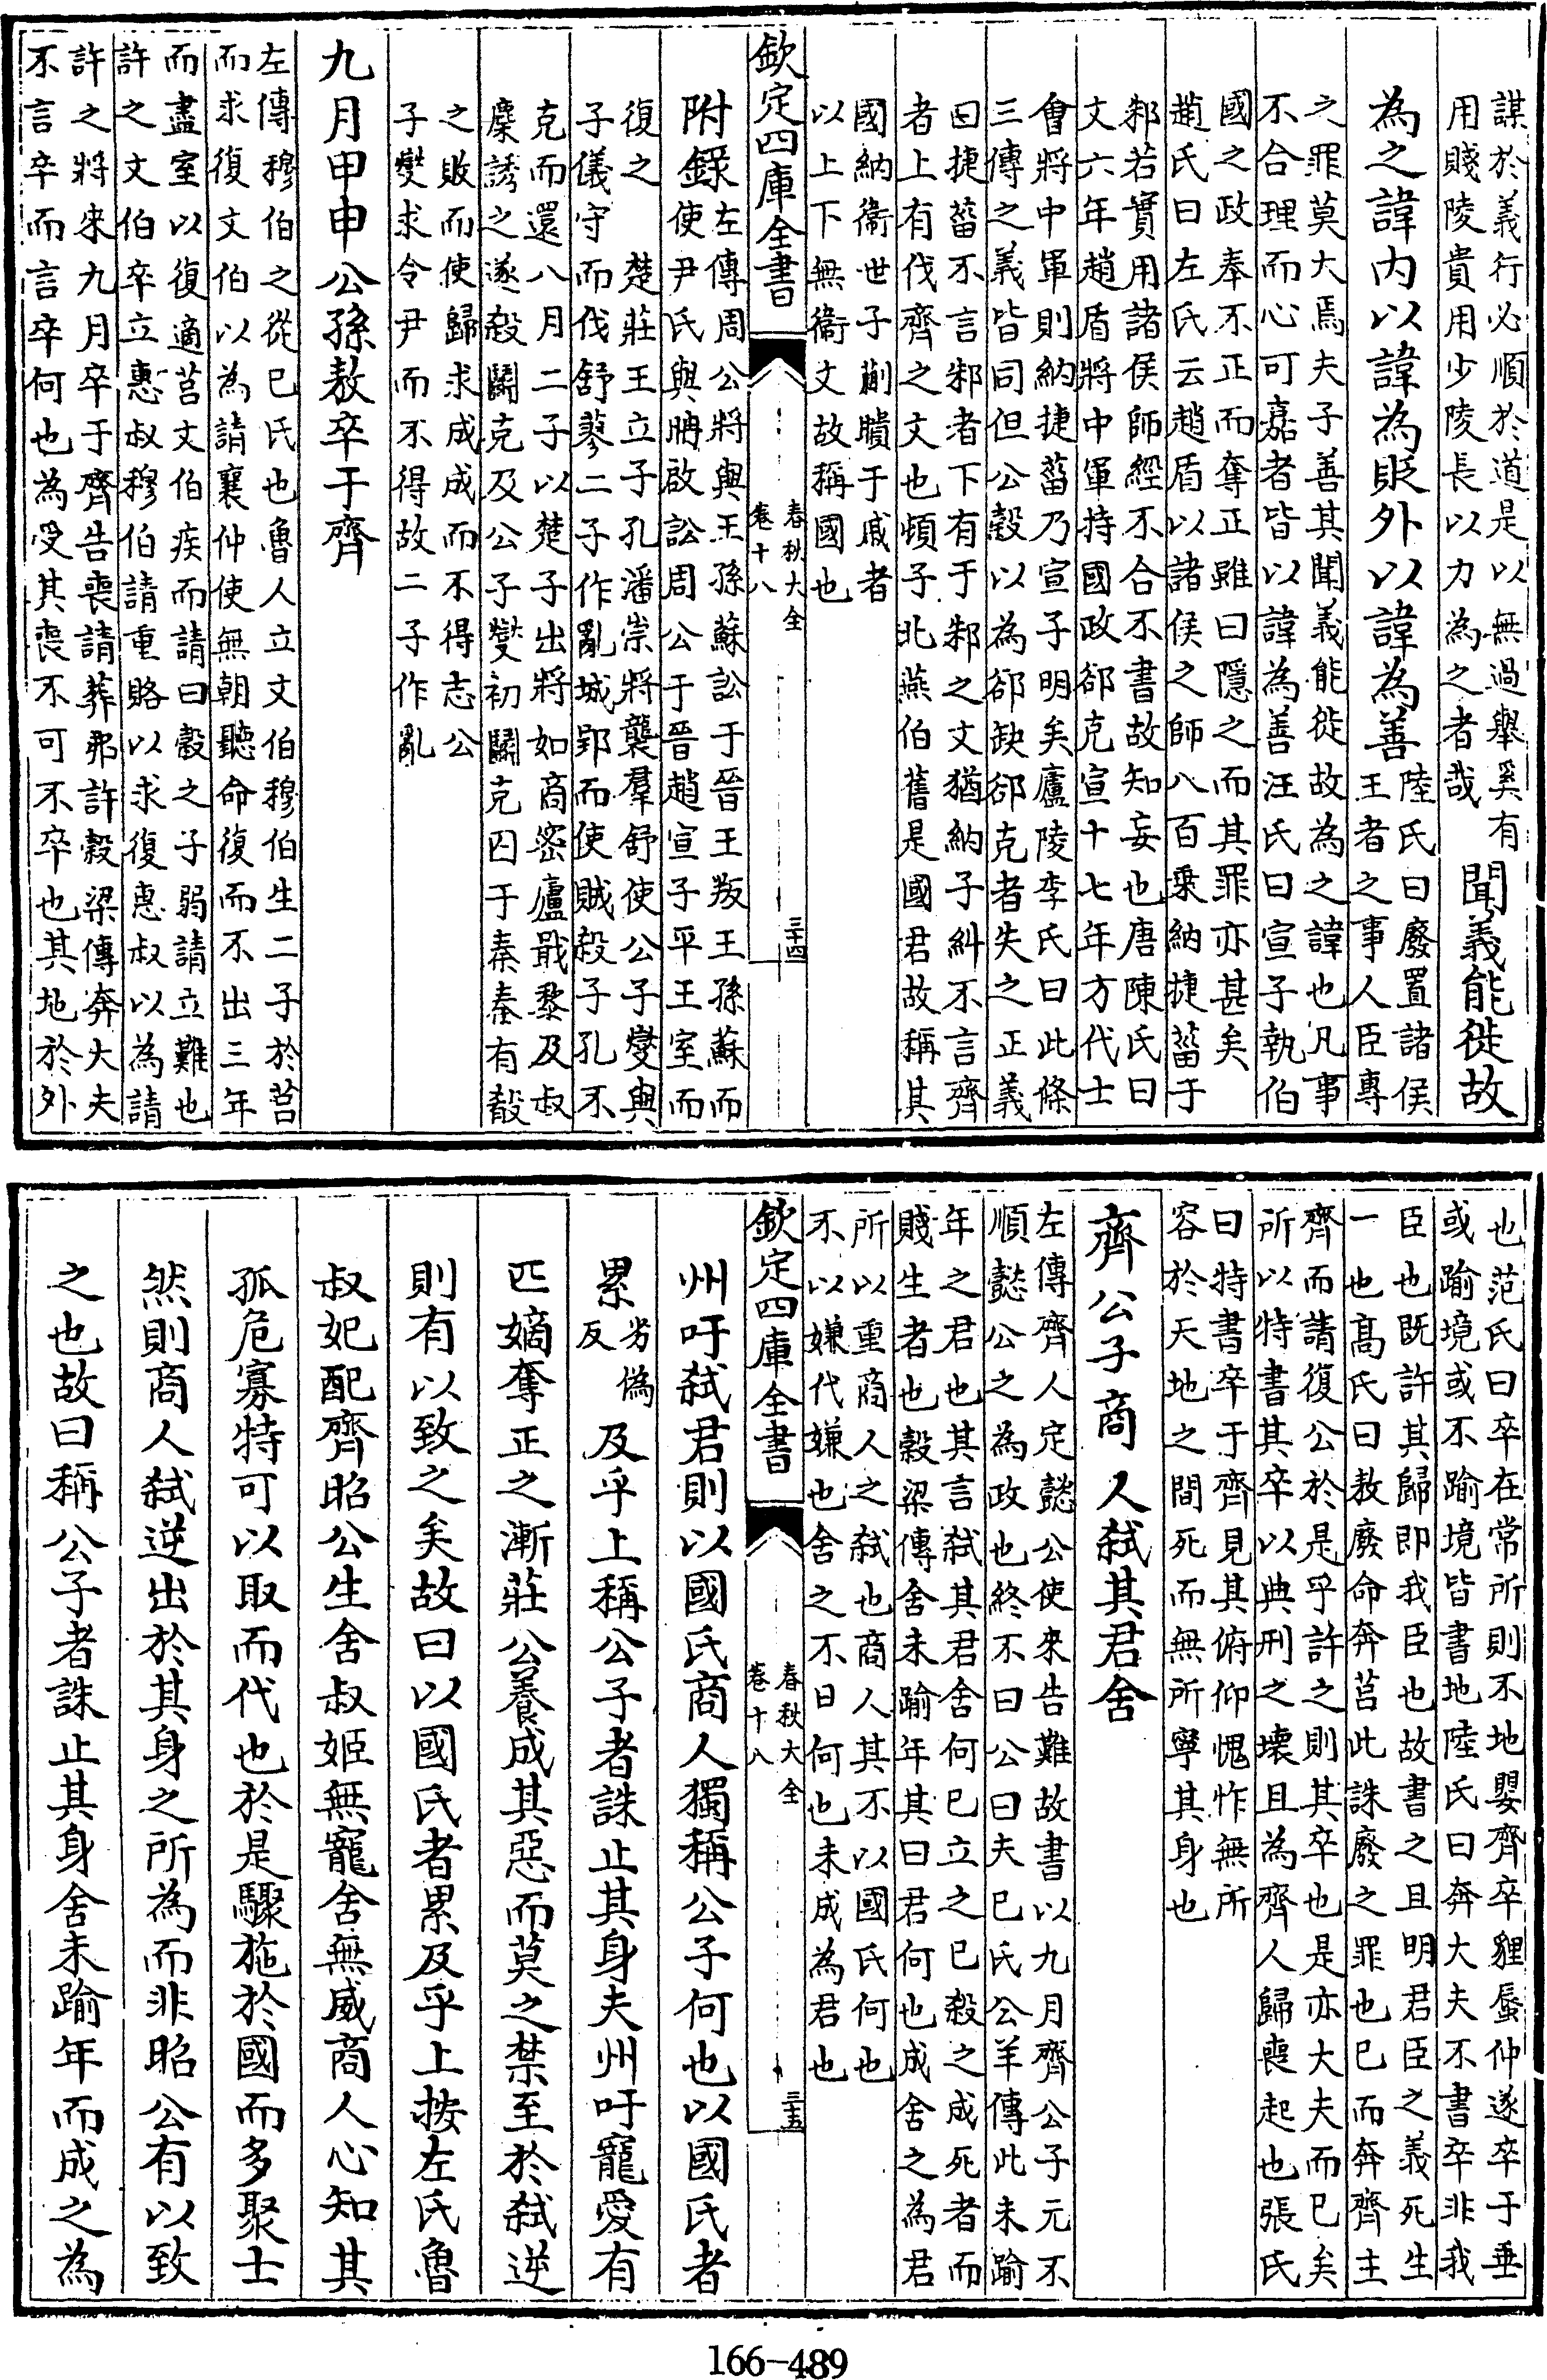 謀於義行必順於道是以無過舉奚有
用賤陵貴用少陵長以力為之者哉
聞義能徙故
為之諱内以諱為貶外以諱為善
陸氏曰廢置諸侯
王者之事人臣專
之罪莫大焉夫子善其聞義能徙故為之諱也凡事
不合理而心可嘉者皆以諱為善汪氏曰宣子執伯
國之政奉不正而奪正雖曰隱之而其罪亦甚矣
趙氏曰左氏云趙盾以諸侯之師八百乗納捷菑于
邾若實用諸侯師經不合不書故知妄也唐陳氏曰
文六年趙盾將中軍持國政郤克宣十七年方代士
㑹將中軍則納捷菑乃宣子明矣廬陵李氏曰此條
三傳之義皆同但公穀以為郤缺郤克者失之正義
曰捷菑不言邾者下有于邾之文猶納子糾不言齊
者上有伐齊之文也頓子北燕伯舊是國君故稱其
國納衞世子蒯聵于戚者
以上下無衞文故稱國也
欽定四庫全書
春秋大全
卷十八
三十四
附錄左傳周公將與王孫蘇訟于晉王叛王孫蘇而
使尹氏與聃啟訟周公于晉趙宣子平王室而
復之 楚莊王立子孔潘崇將襲羣舒使公子燮與
子儀守 而伐舒蓼二子作亂城郢而使賊殺子孔不
克而還八月二子以楚子出將如商密廬戢黎及叔
麋誘之遂殺鬬克及公子燮初鬬克囚于秦秦有殽
之敗而使歸求成成而不得志公
子燮求令尹而不得故二子作亂
九月甲申公孫敖卒于齊
左傳穆伯之從已氏也魯人立文伯穆伯生二子於莒
而求復文伯以為請襄仲使無朝聽命復而不出三年
而盡室以復適莒文伯疾而請曰穀之子弱請立難也
許之文伯卒立惠叔穆伯請重賂以求復惠叔以為請
許之將來九月卒于齊告喪請葬弗許穀梁傳奔大夫
不言卒而言卒何也為受其喪不可不卒也其地於外
也范氏曰卒在常所則不地嬰齊卒貍蜃仲遂卒于垂
或踰境或不踰境皆書地陸氏曰奔大夫不書卒非我
臣也既許其歸即我臣也故書之且明君臣之義死生
一也髙氏曰敖廢命奔莒此誅廢之罪也已而奔齊主
齊而請復公於是乎許之則其卒也是亦大夫而已矣
所以特書其卒以典刑之壊且為齊人歸喪起也張氏
曰特書卒于齊見其俯仰愧怍無所
容於天地之間死而無所寧其身也
齊公子商人弑其君舍
左傳齊人定懿公使來告難故書以九月齊公子元不
順懿公之為政也終不曰公曰夫已氏公羊傳此未踰
年之君也其言弑其君舍何已立之已殺之成死者而
賤生者也穀梁傳舍未踰年其曰君何也成舍之為君
所以重商人之弑也商人其不以國氏何也
不以嫌代嫌也舍之不日何也未成為君也
欽定四庫全書
春秋大全
卷十八
三十五
州吁弑君則以國氏商人獨稱公子何也以國氏者
累
劣偽
反
及乎上稱公子者誅止其身夫州吁寵愛有
匹嫡奪正之漸莊公養成其惡而莫之禁至於弑逆
則有以致之矣故曰以國氏者累及乎上按左氏魯
叔妃配齊昭公生舍叔姬無寵舍無威商人心知其
孤危寡特可以取而代也於是驟施於國而多聚士
然則商人弑逆出於其身之所為而非昭公有以致
之也故曰稱公子者誅止其身舍未踰年而成之為
166-489